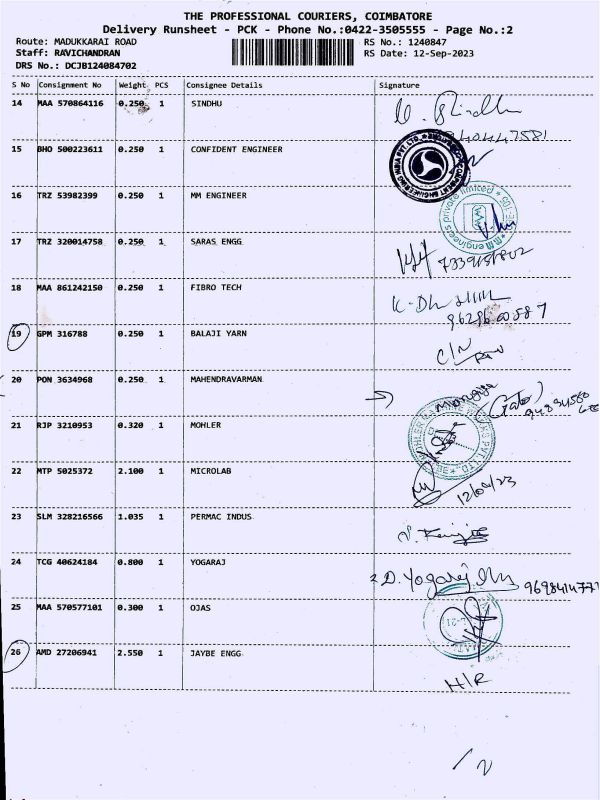 THE PROFESSIONAL COURIERS, COIMBATORE
Delivery Runsheet - PCK - Phone No.:0422-3505555 - Page No.:2
Route: MADUKKARAI ROAD RS No.: 1240847
Staff: RAVICHANDRAN RS Date: 12-Sep-2023
DRS No.: DCJB124084702
S No Consignment No Weight PCS Consignee Details Signature
14 MAA 570864116 0.250 1 SINDHU
15 BHO 500223611 0.250 1 CONFIDENT ENGINEER
16 TRZ 53982399 0.250 1 MM ENGINEER
17 TRZ 320014758 0.250 1 SARAS ENGG
18 MAA 861242150 0.250 1 FIBRO TECH
19 GPM 316788 0.250 1 BALAJI YARN
20 PON 3634968 0.250 1 MAHENDRAVARMAN
21 RJP 3210953 0.320 1 MOHLER
22 MTP 5025372 2.100 1 MICROLAB
12/09/23
23 SLM 328216566 1.035 1 PERMAC INDUS
24 TCG 40624184 0.800 1 YOGARAJ D. Yogaraj
25 MAA 570577101 0.300 1 OJAS
26 AMD 27206941 2.550 1 JAYBE ENGG